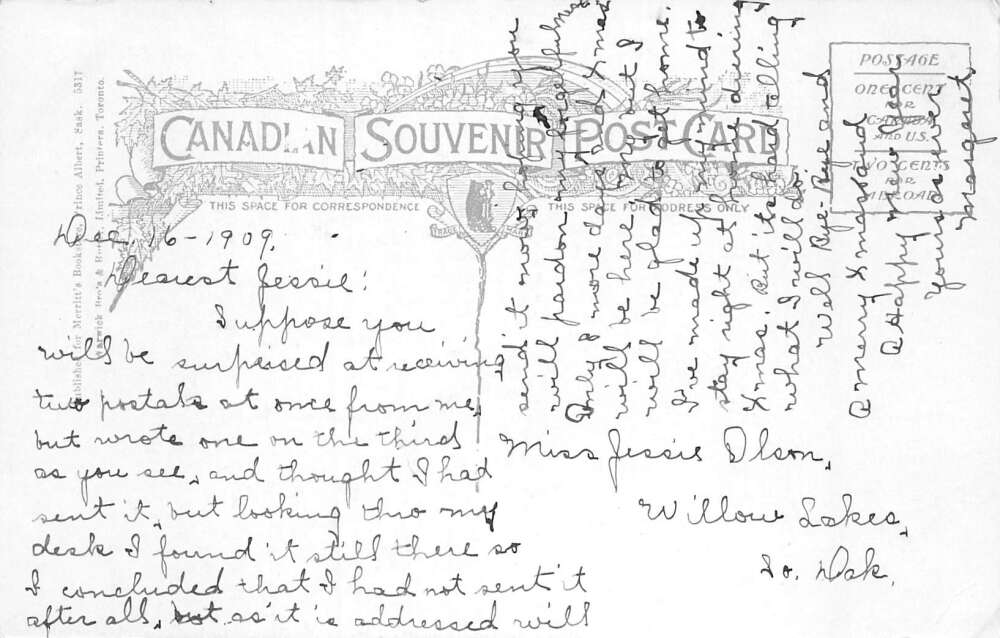 CANADIAN SOUVENIR POST CARD
THIS SPACE FOR CORRESPONDENCE
THIS SPACE FOR ADDRESS ONLY
POSTAGE
ONE CENT
FOR
CANADA
AND U.S.
TWO CENTS
FOR
ABROAD
Published for Merritt's Bookstore, Prince Albert, Sask. 5317
Warwick Bro's & Rutter, Limited, Printers, Toronto.
Dec. 16-1909.
Dearest Jessie:
Suppose you
will be surprised at receiving
two postals at once from me,
but wrote one on the third
as you see, and thought I had
sent it, but looking thro my
desk I found it still there so
I concluded that I had not sent it
after all, but as it is addressed will
send it now hoping you
will pardon my forgetfulness
Only 8 more days and Xmas
will be here. My but I
will be glad to be at home.
I've made up my mind to
stay right at home during
Xmas. But its hard telling
what I will do.
Well Bye-Bye and
a merry Xmas and
a Happy New Year
Yours as ever
Margaret
Miss Jessie Olson,
Willow Lakes,
So. Dak.